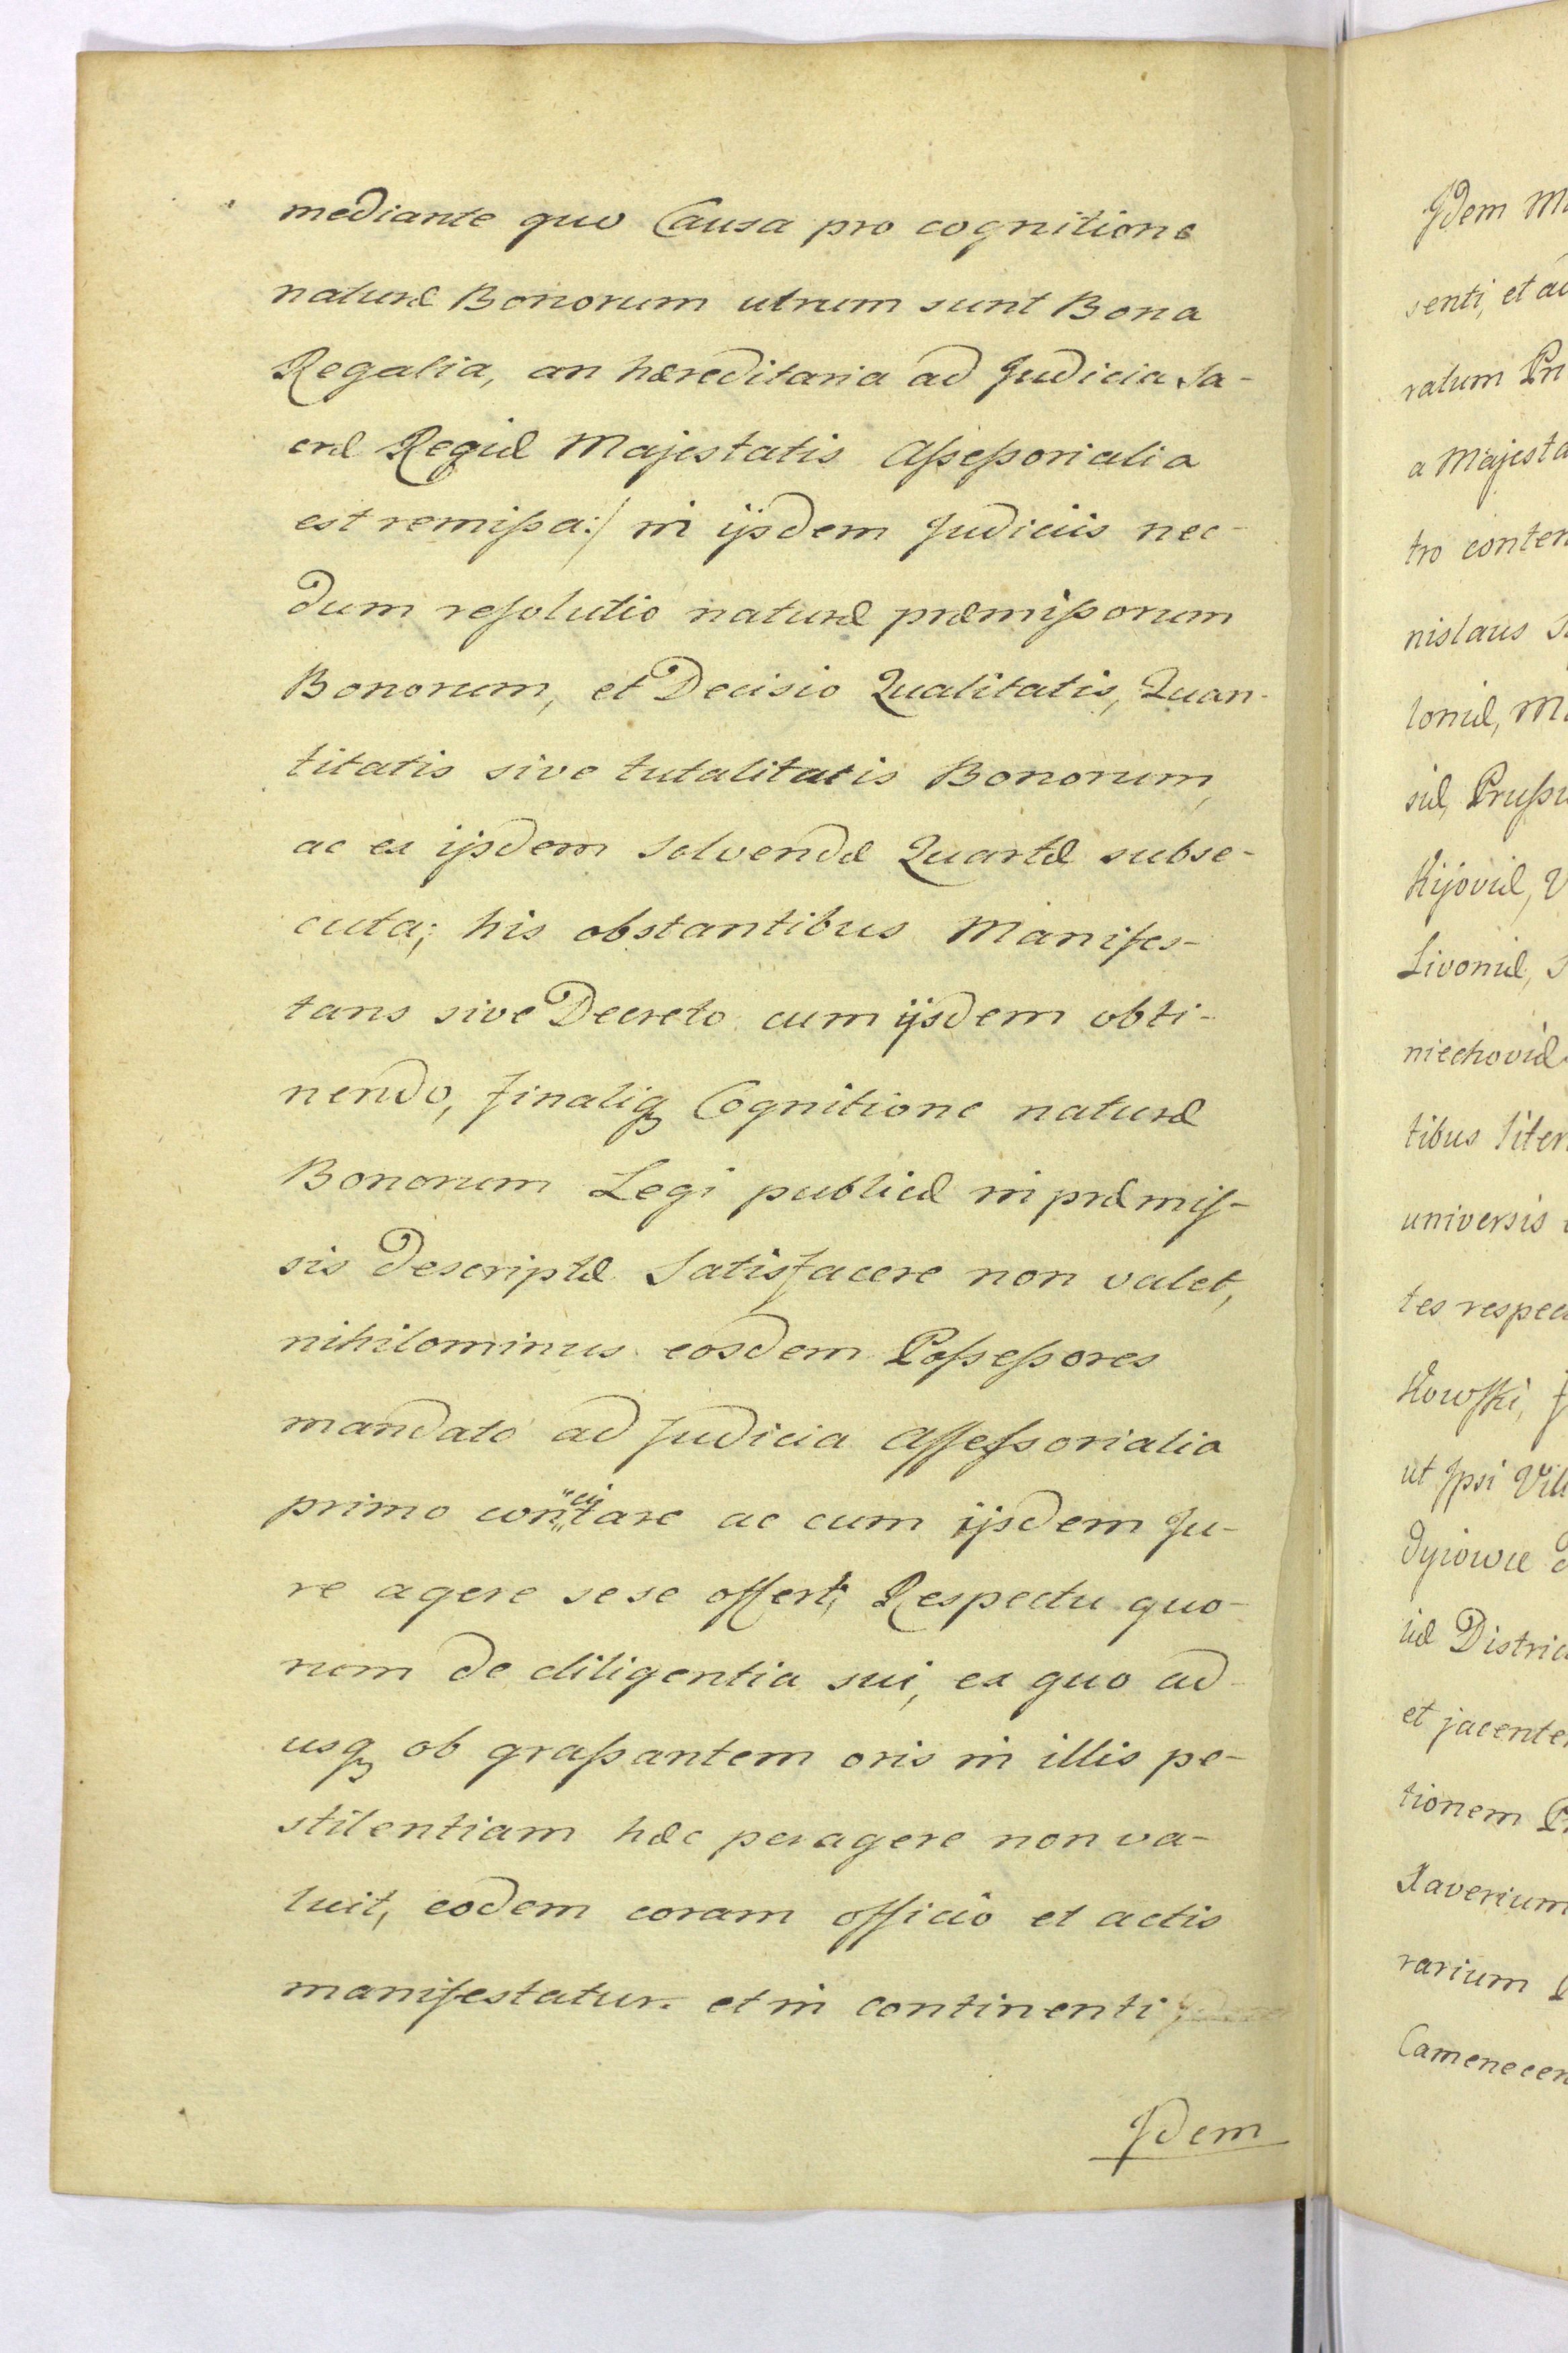 mediante quo Causa pro cognitione
naturæ Bonorum utrum sunt Bona
Regalia, an hæreditaria ad Judicia Sa-
cræ Regiæ Majestatis Assessorialia
est remissa:/ in ijsdem Judiciis nec-
dum resolutio naturæ præmissorum
Bonorum, et Decisio Qualitatis, Quan-
titatis sive tutalitatis Bonorum,
ac ex ijsdem solvendæ Quartæ subse-
cuta; his obstantibus Manifes-
tans sive Decreto cum ijsdem obti-
nendo, finaliq Cognitione naturæ
Bonorum Legi publicæ in præmis-
sis descriptæ Satisfacere non valet,
nihilominus eosdem Possessores
mandato ad Judicia Assessorialia
primo concitare ac cum ijsdem Ju-
re agere sese offert; Respectu quo-
rum de diligentia sui, ex quo ad-
usq ob grassantem oris in illis pe-
stilentiam hæc peragere non va-
luit, eodem coram officiô et actis
manifestatur. et in continenti
Idem
Idem
senti, et
ratum
a Majesta
tro conten
nislaus
toniæ,
siæ, Prussi
Kijoviæ,
Livoniæ,
niechoviæ
tibus liter
universis
tes respec
kowski,
ut Ipsi
dyiowce
iæ Distric
et jacente
tionem
Xaverium
rarium
Camenecen